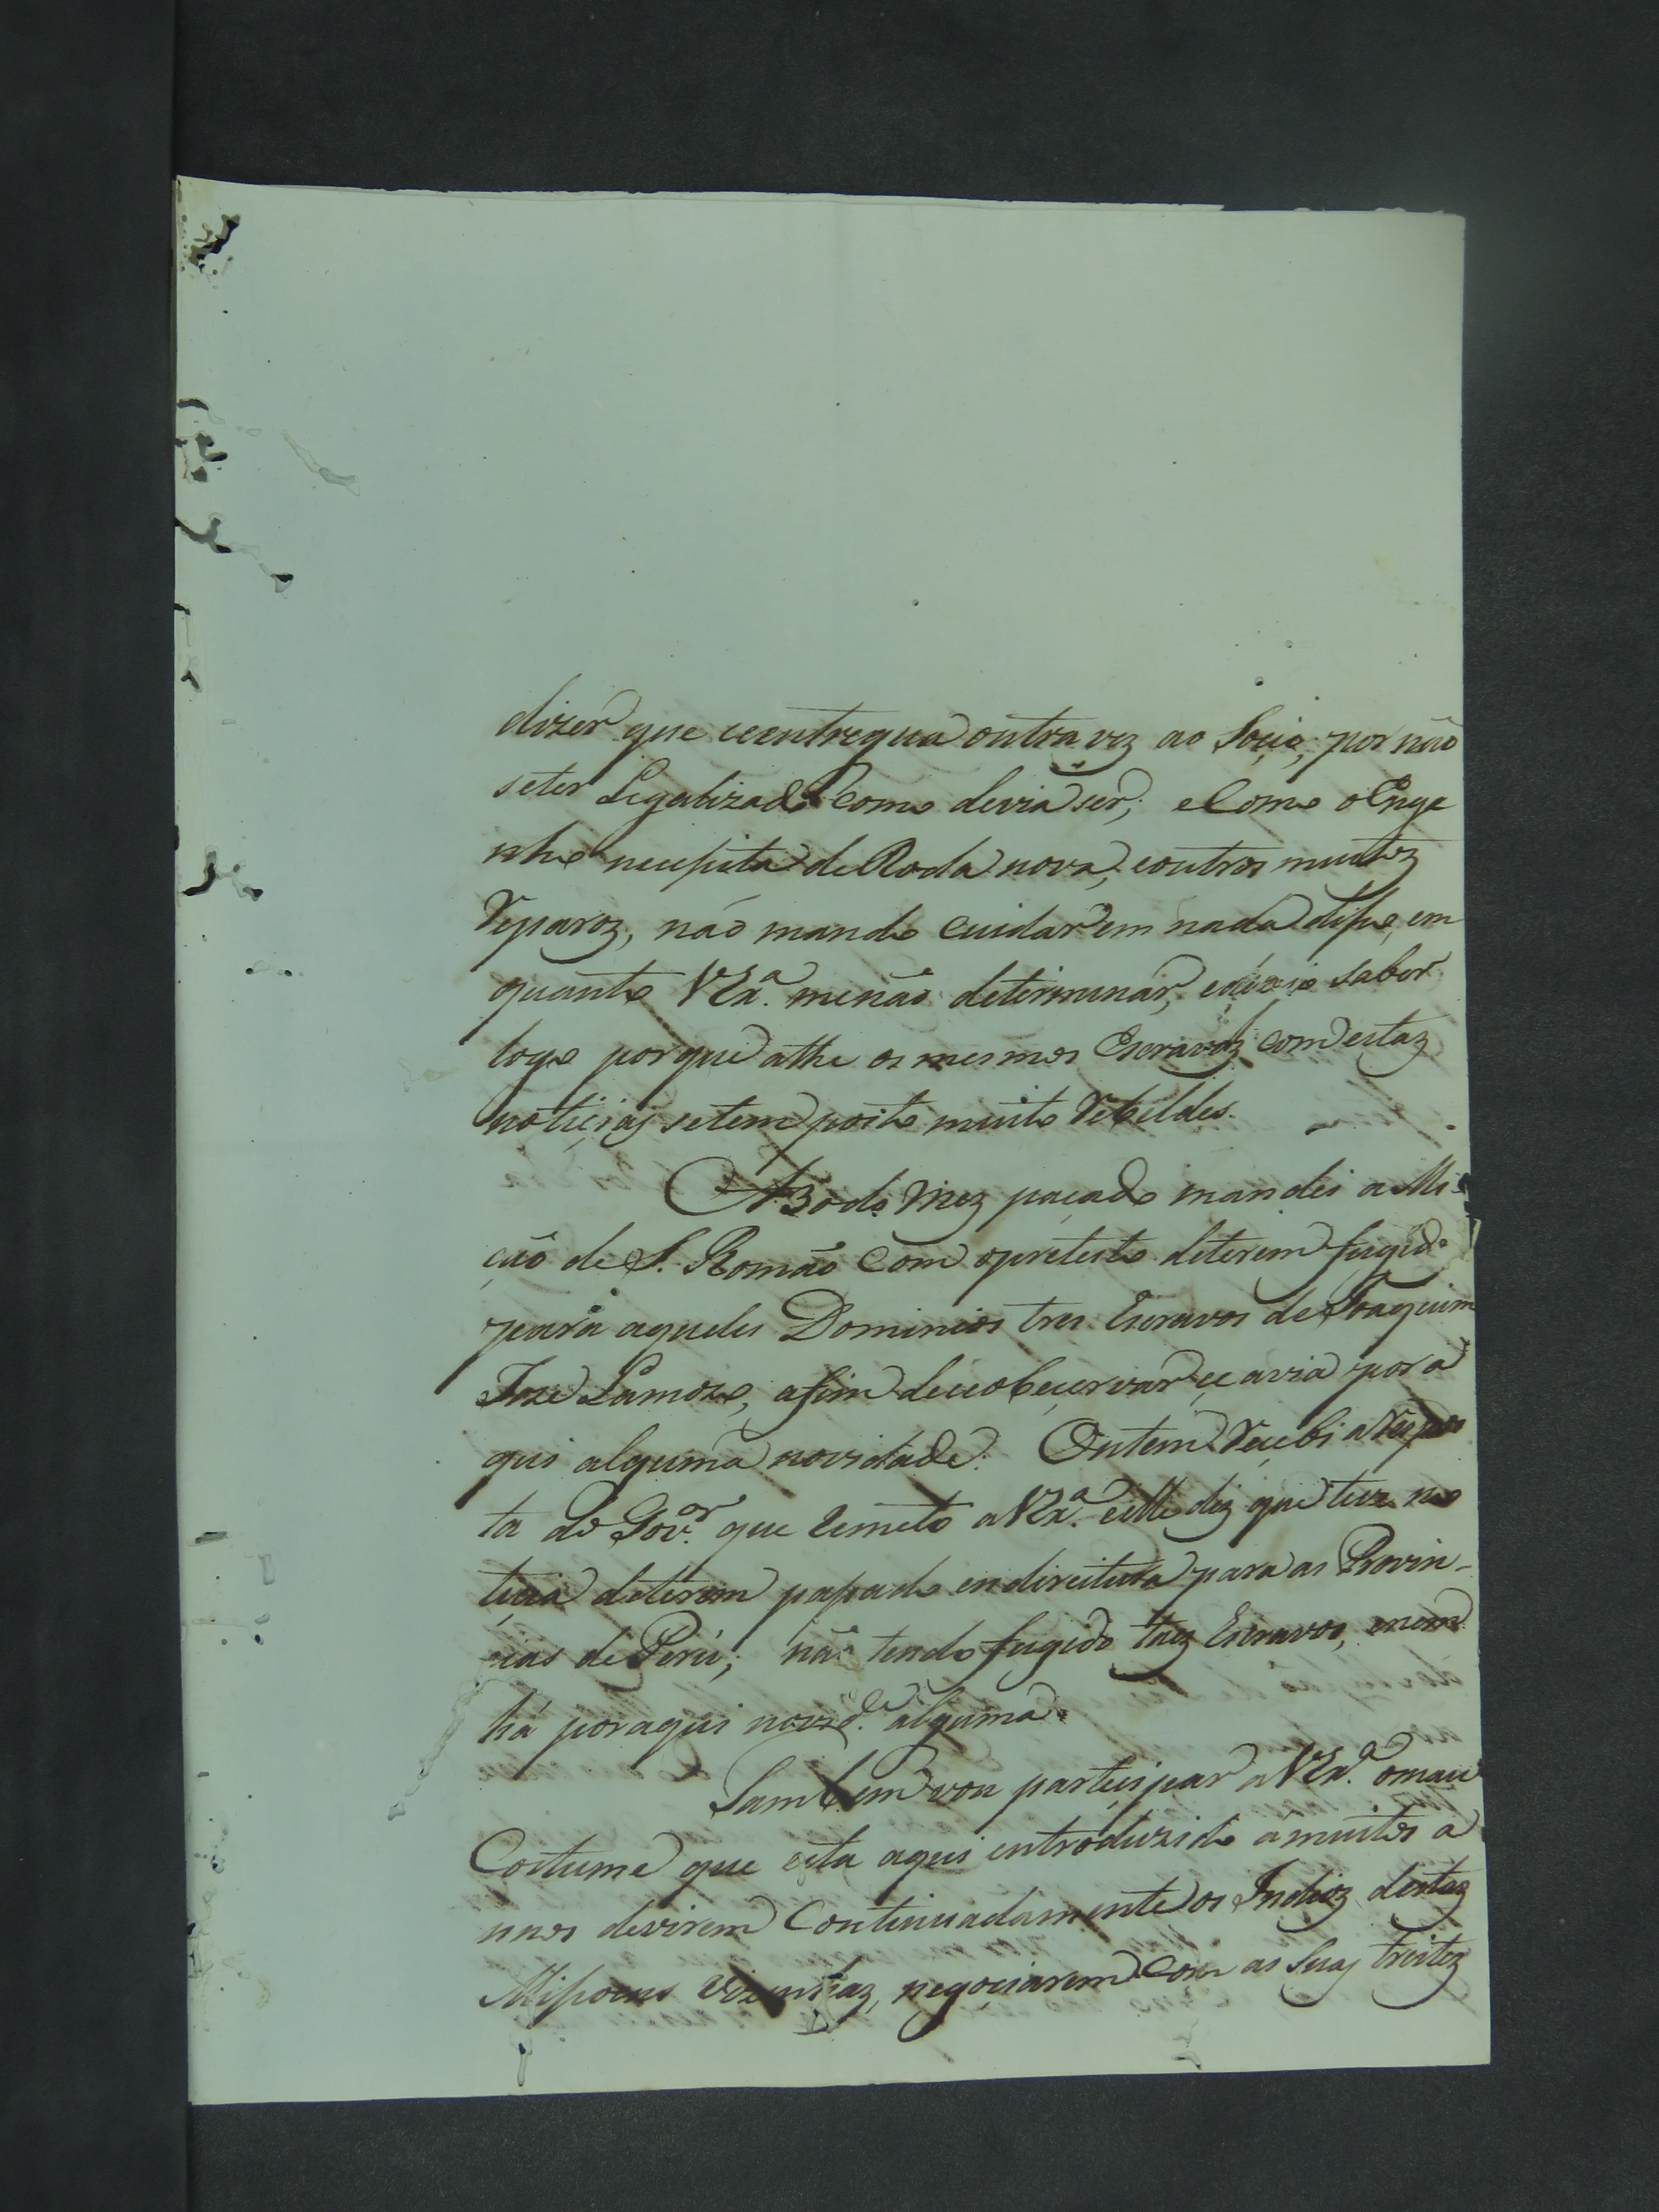 dizer que ceentregua outra vez ao Soçio, por não
seter Legalizado Como devia ser; e Como o Enge
nho necesita de Roda nova, eoutros muitoz
Reparoz, não mando cuidar em nada diso, em
quanto VExª. menão determinar, edezejo saber
logo porque athe os mesmos Escravoz com estaz
notiçias setem posto muito Rebeldes.
A 3 do Mez paçado mandei a Mi-
ção de S. Romão com opretesto deterem fugido
para aqueles Dominios tres Escravos de Joaquim
Joze Ramos, afim deceobeçervar çe avia por a
qui alguma novidade. Ontem Reçebi a Respos
ta do Govor. que Remeto aVExª. eelle diz que teve no
tiçia deterem pasado endireitura para as Provin-
cias de Perú; não tendo fugido taes Escravos, enem
há por aqui novide. alguma.
Tambem vou partiçipar aVExª. omau
Costume que esta aqui introduzido ámuitos a
nnos devirem Continuadamente os Indioz destaz
Misoens Vizinhaz, negoçiarem com as Suas treitez